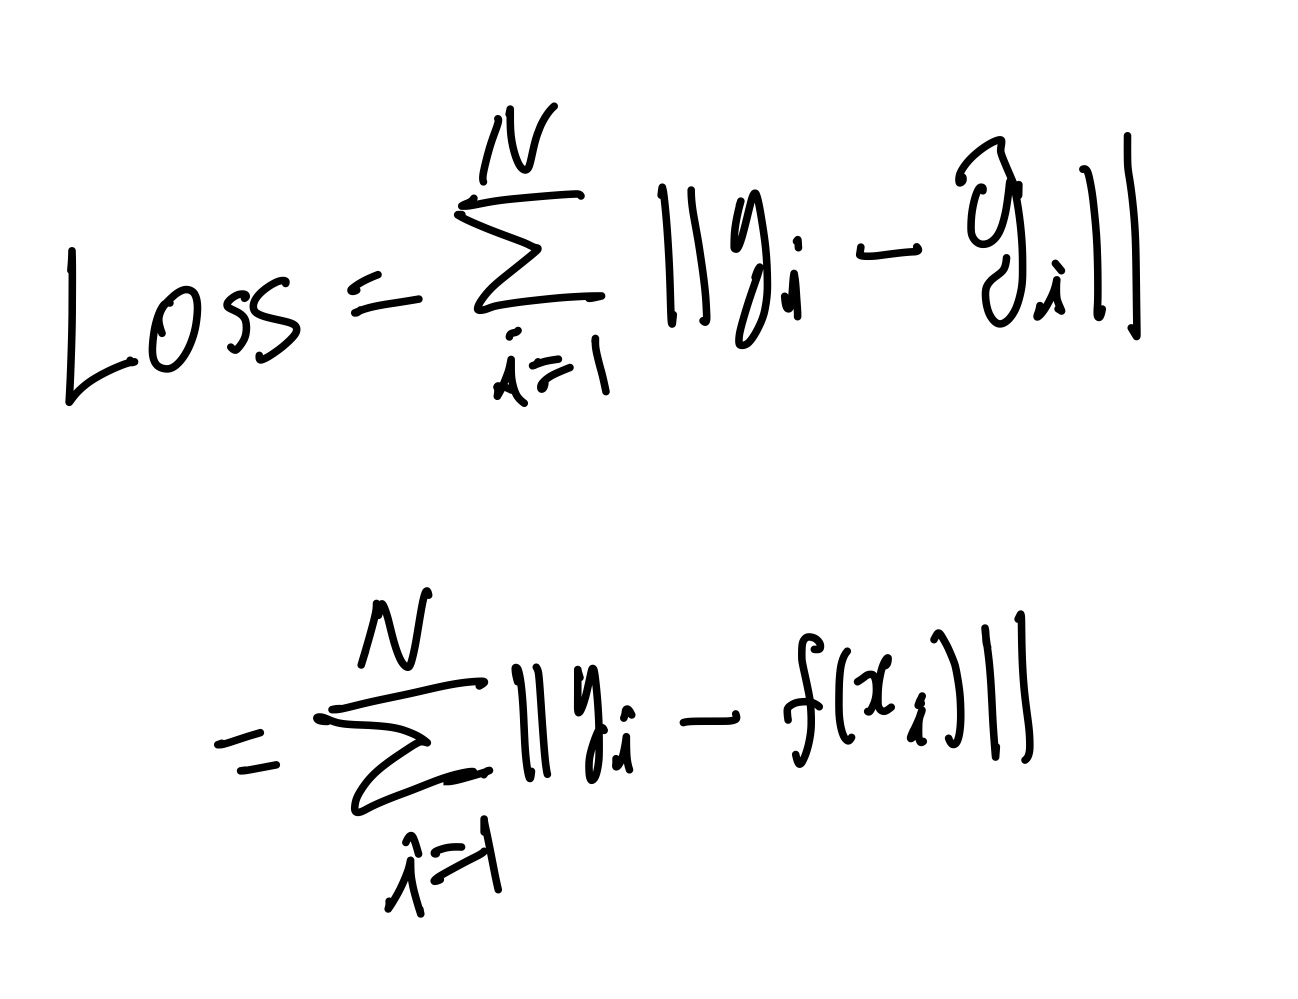 Loss = \sum_{i=1}^{N} || y_i - \hat{y}_i ||
= \sum_{i=1}^{N} || y_i - f(x_i) ||